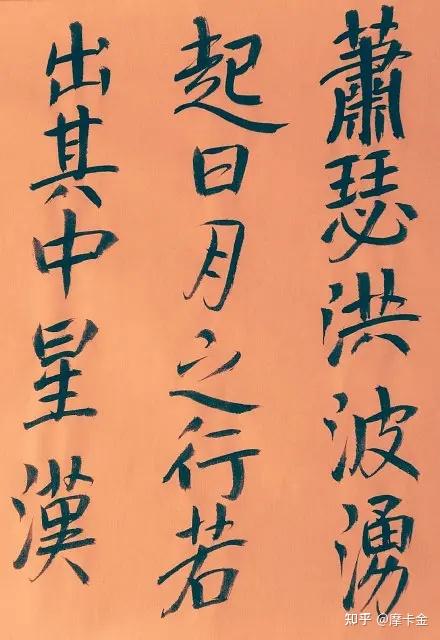 蕭瑟洪波湧
起日月之行若
出其中星漢
知乎 @摩卡金